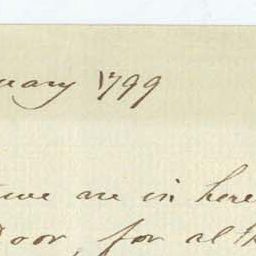 uary 1799
we are in here
Door, for alth